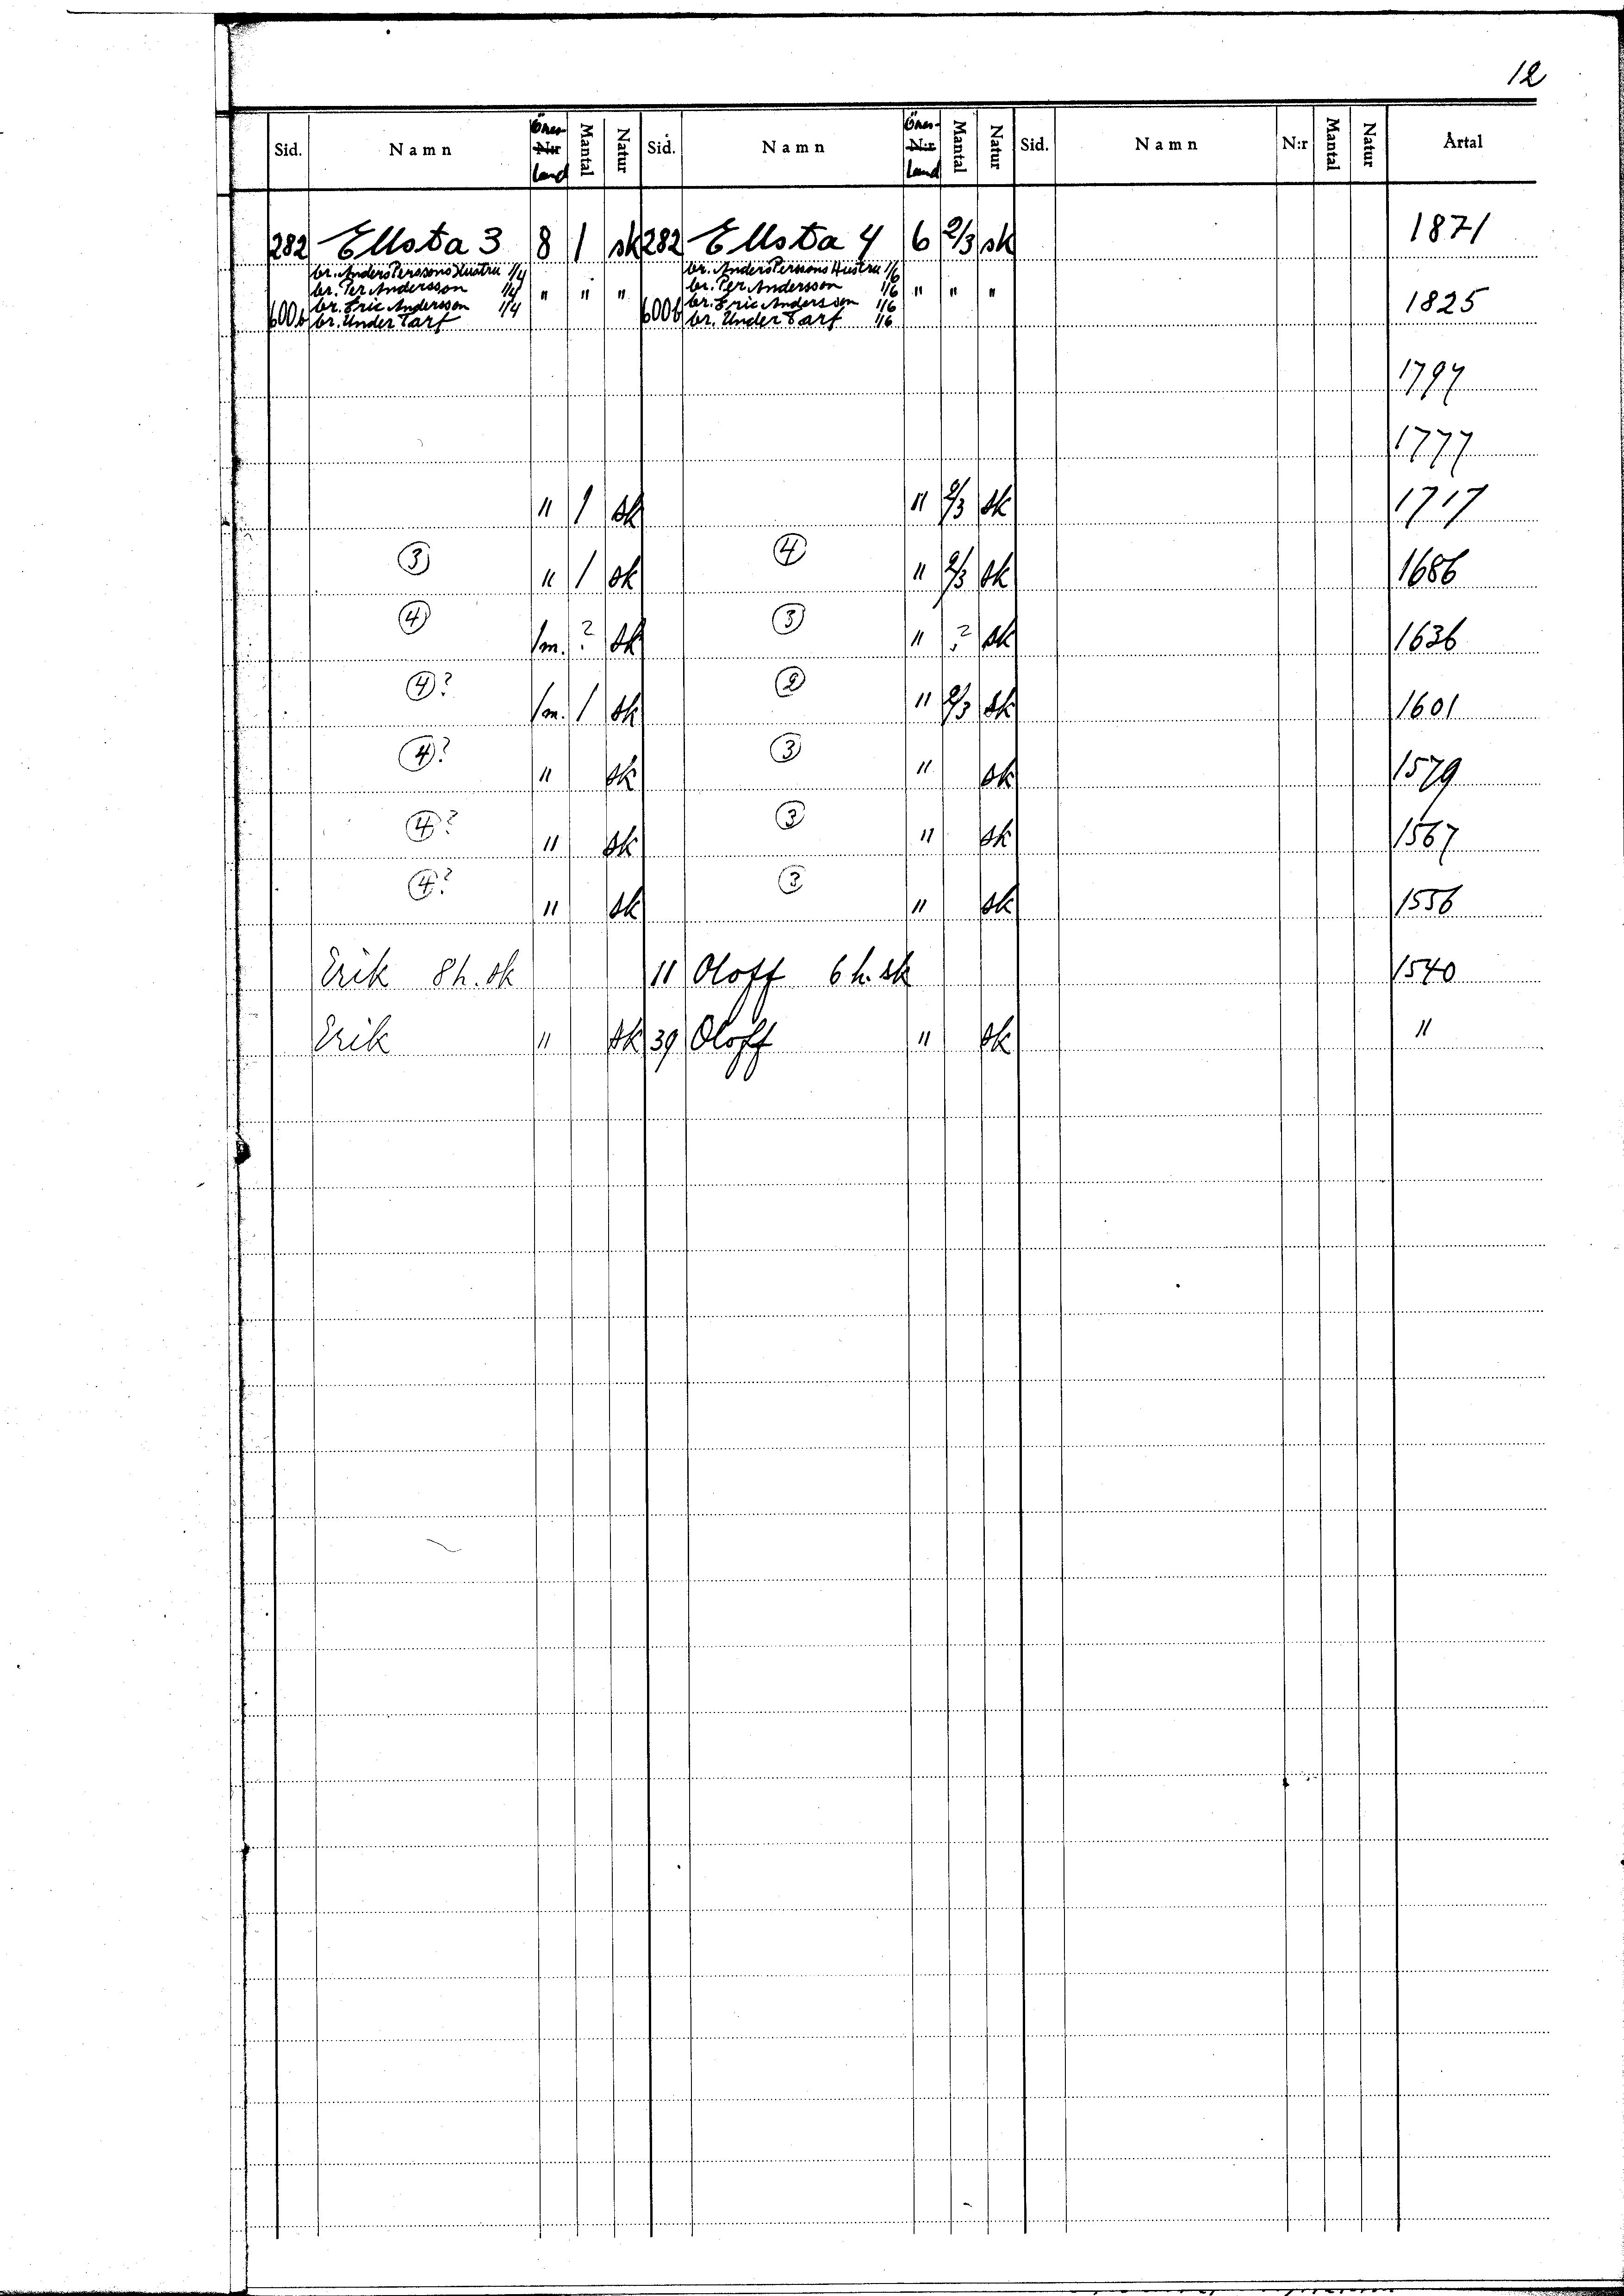 12
Sid. Namn Öres- N:r land Mantal Natur Sid. Namn Öres- N:r land Mantal Natur Sid. Namn N:r Mantal Natur Årtal
282 Ellsta 3 8 1 sk 282 Ellsta 4 6 2/3 sk 1871
br. Anders Perssons Hustru 1/4 br. Anders Perssons Hustru 1/6
br. Per Andersson 1/4 " " " br. Per Andersson 1/6 " " "
br. Eric Andersson 1/4 br. Eric Andersson 1/6 1825
600b br. Under Tarf 600b br. Under Tarf 1/6
1797
1777
" 1 sk " 2/3 sk 1717
3 " 1 sk 4 " 2/3 sk 1686
4 1m. ? sk 3 " ? sk 1636
4? 1m. 1 sk 2 " 2/3 sk 1601
4? " sk 3 " sk 1579
4? " sk 3 " sk 1567
4? " sk 3 " sk 1556
Erik 8 h. sk 11 Oloff 6 h. sk 1540
Erik " sk 39 Oloff " sk "